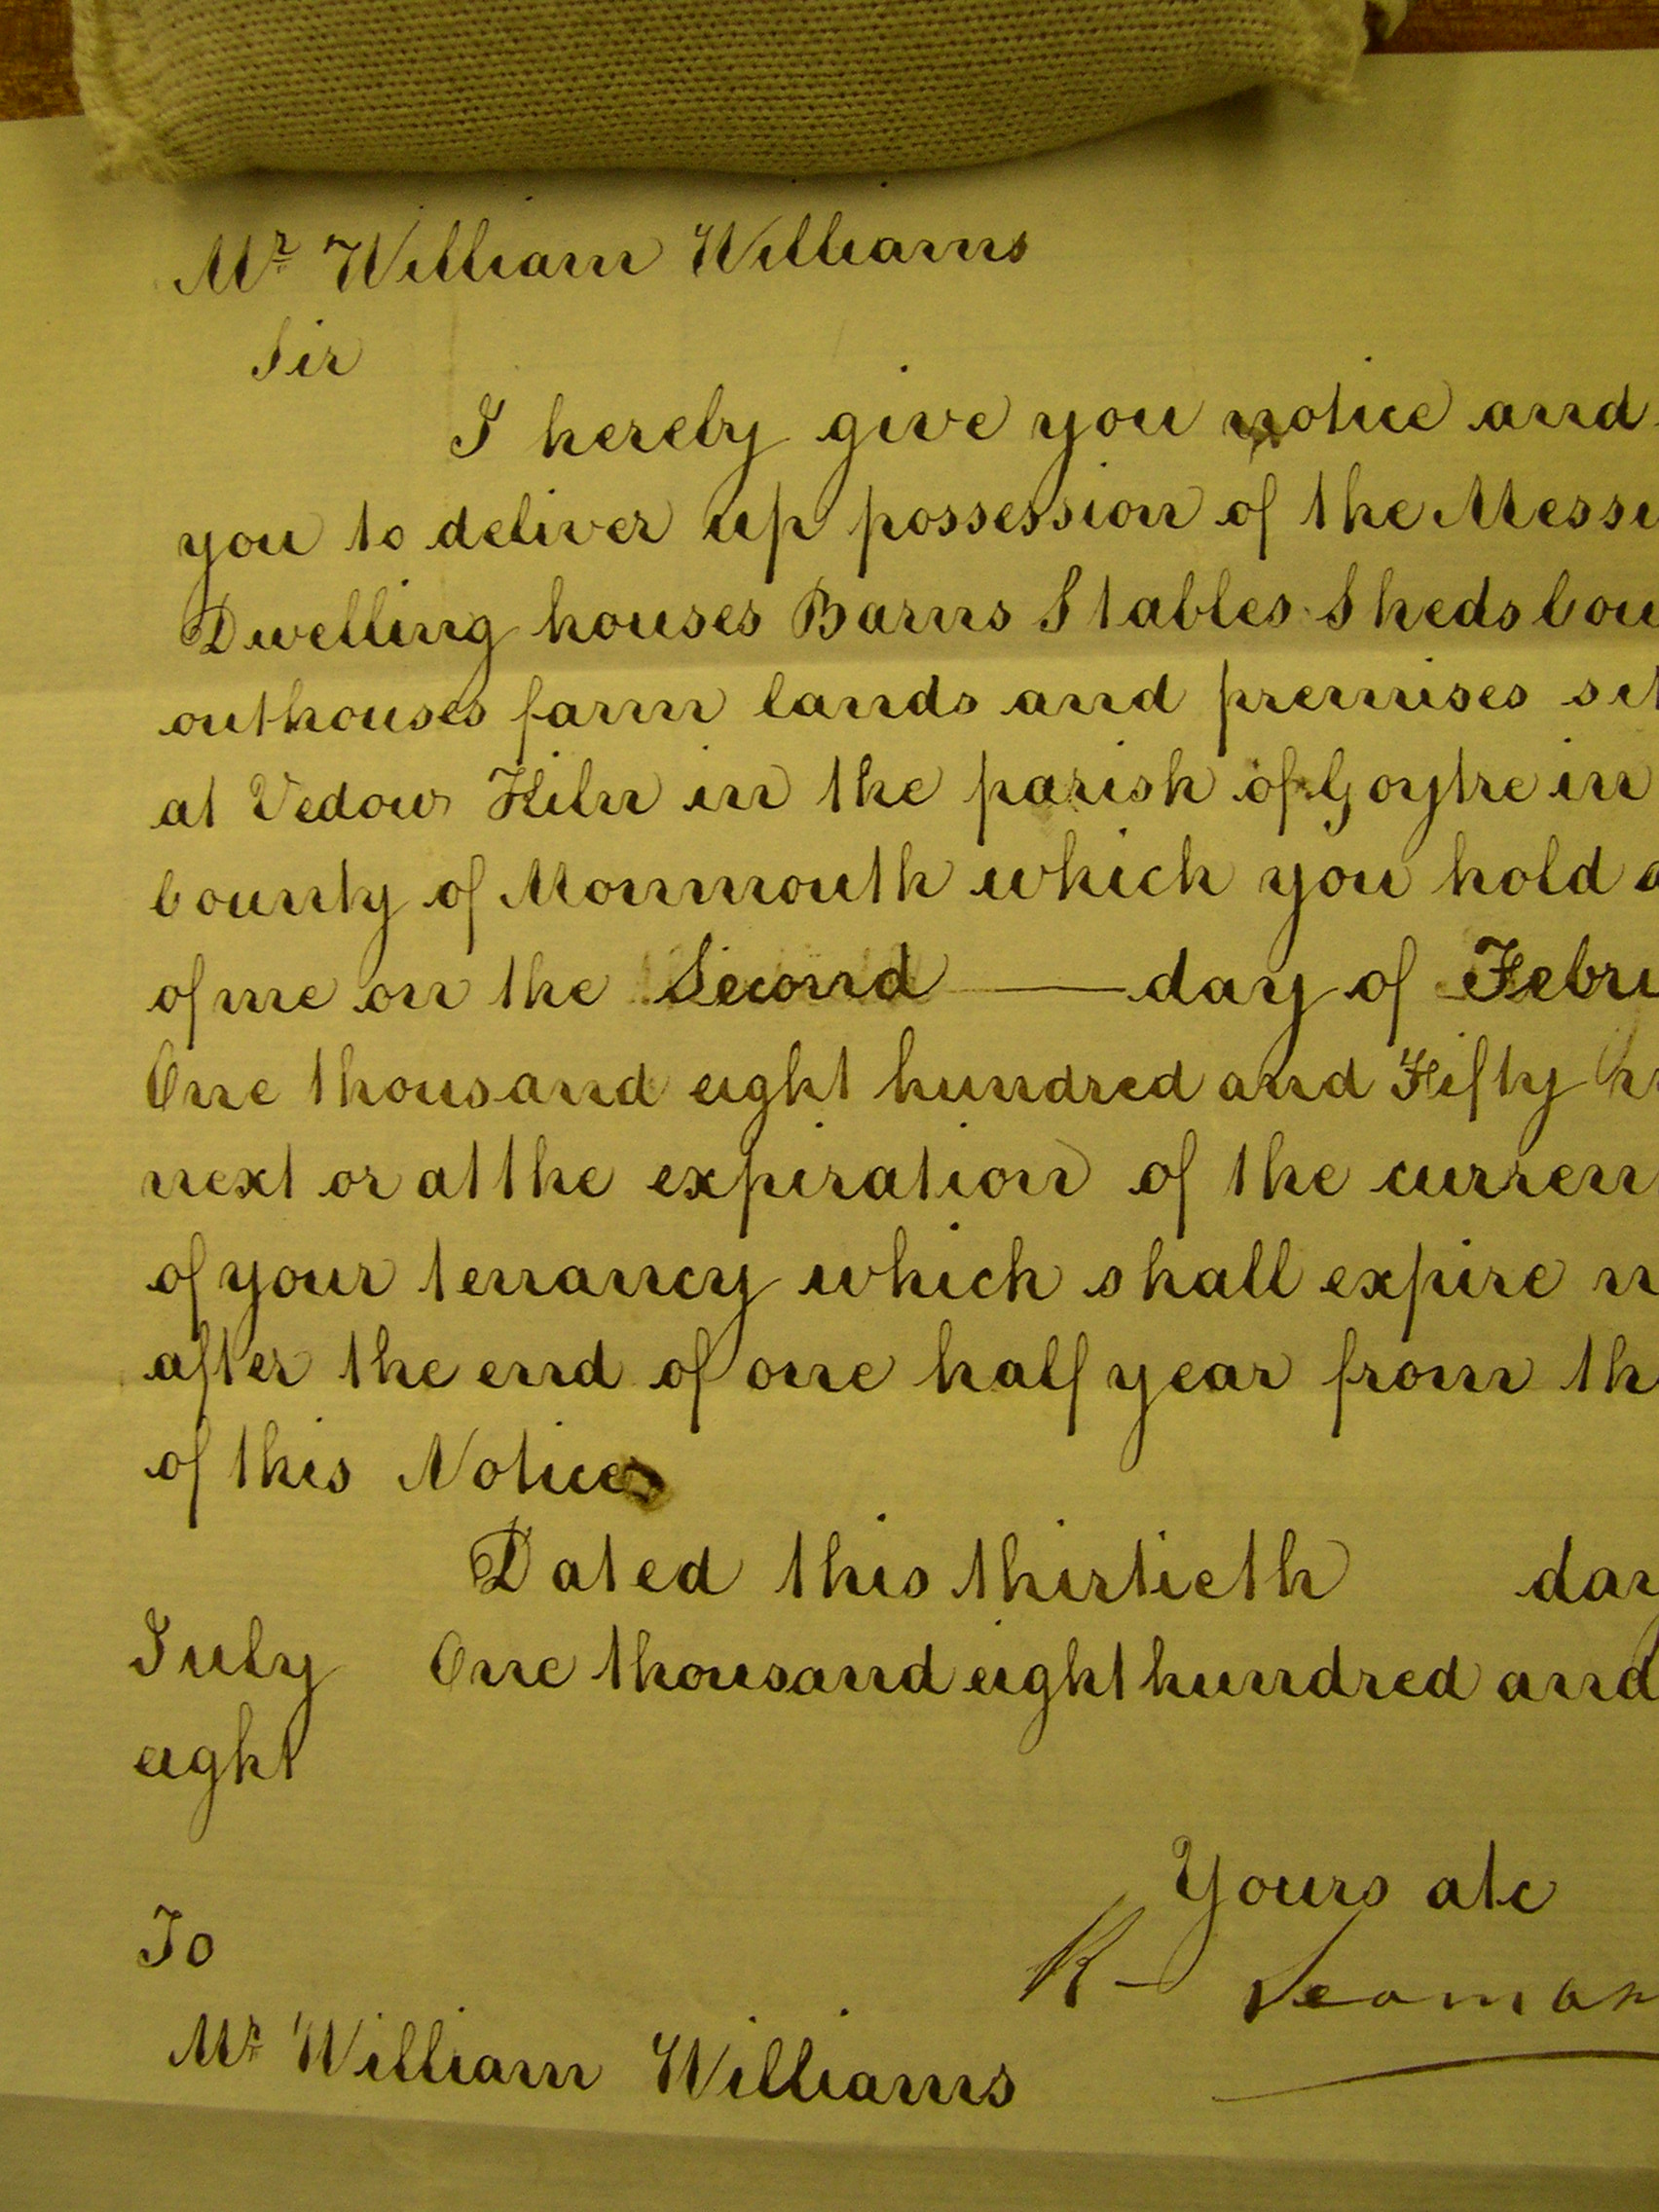 Mr William Williams
Sir
I hereby give you notice and
you to deliver up possession of the Messu
Dwelling houses Barns Stables Sheds Cou
outhouses farm lands and premises sit
at Vedow Kiln in the parish of Goytre in
County of Monmouth which you hold a
of me on the Second day of Febru
One thousand eight hundred and Fifty
next or at the expiration of the curren
of your tenancy which shall expire n
after the end of one half year from th
of this Notice
Dated this thirtieth day
July One thousand eight hundred and
eight
Yours etc
R Seaman
To
Mr William Williams